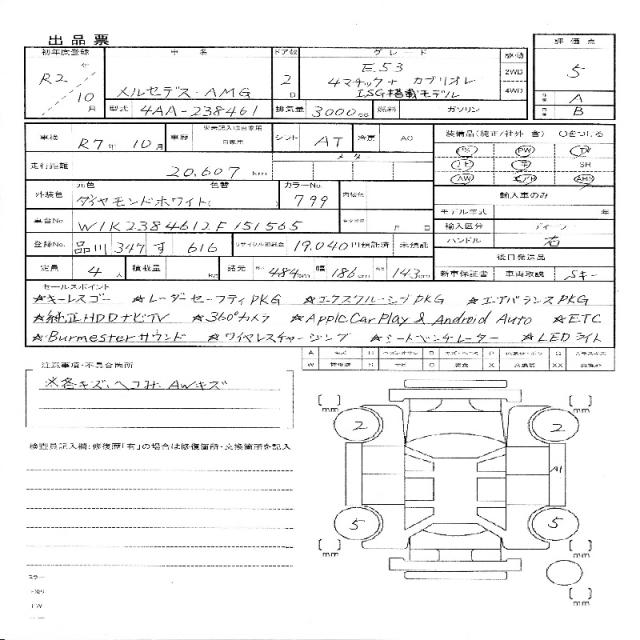 出品票
初年度登録 車名 ドア数 グレード 駆動 評価点
R2年10月 メルセデス・AMG 2D E53 4マチック+ カブリオレ ISG搭載モデル 2WD 4WD 5
A
B
型式 4AA-238461 排気量 3000cc 燃料 ガソリン
車検 R7年10月 車歴 自家用 シフト AT 冷房 AC 装備品(純正/社外 含)
メーター
走行距離 20,607km PW SR AW
外装色 元色 色替 カラーNo.
ダイヤモンドホワイト( ) 799
輸入車のみ
モデル年式 年
車台No. W1K2384612F151565 輸入区分 ディーラー
登録No. 品川 347 す 616 リサイクル預託金 19,040円預託済 未預託 ハンドル 右
後日発送品
定員 4人 積載量 諸元 長さ 484cm 幅 186cm 高さ 143cm 新車保証書 車両取説 Sキー
セールスポイント
☆キーレスゴー ☆レーダーセーフティPKG ☆エクスクルーシブPKG ☆エナバランスPKG
☆純正HDDナビTV ☆360°カメラ ☆Apple Car Play & Android Auto ☆ETC
☆Burmesterサウンド ☆ワイヤレスチャージング ☆シートベンチレーター ☆LEDライト
注意事項・不具合箇所
※各キズ、ヘコミ、AWキズ
検査員記入欄:修復歴「有」の場合は修復箇所・交換箇所を記入
[ ]mm [ ]mm
2 2
A1
5 5
[ ]mm [ ]mm
[ ]mm